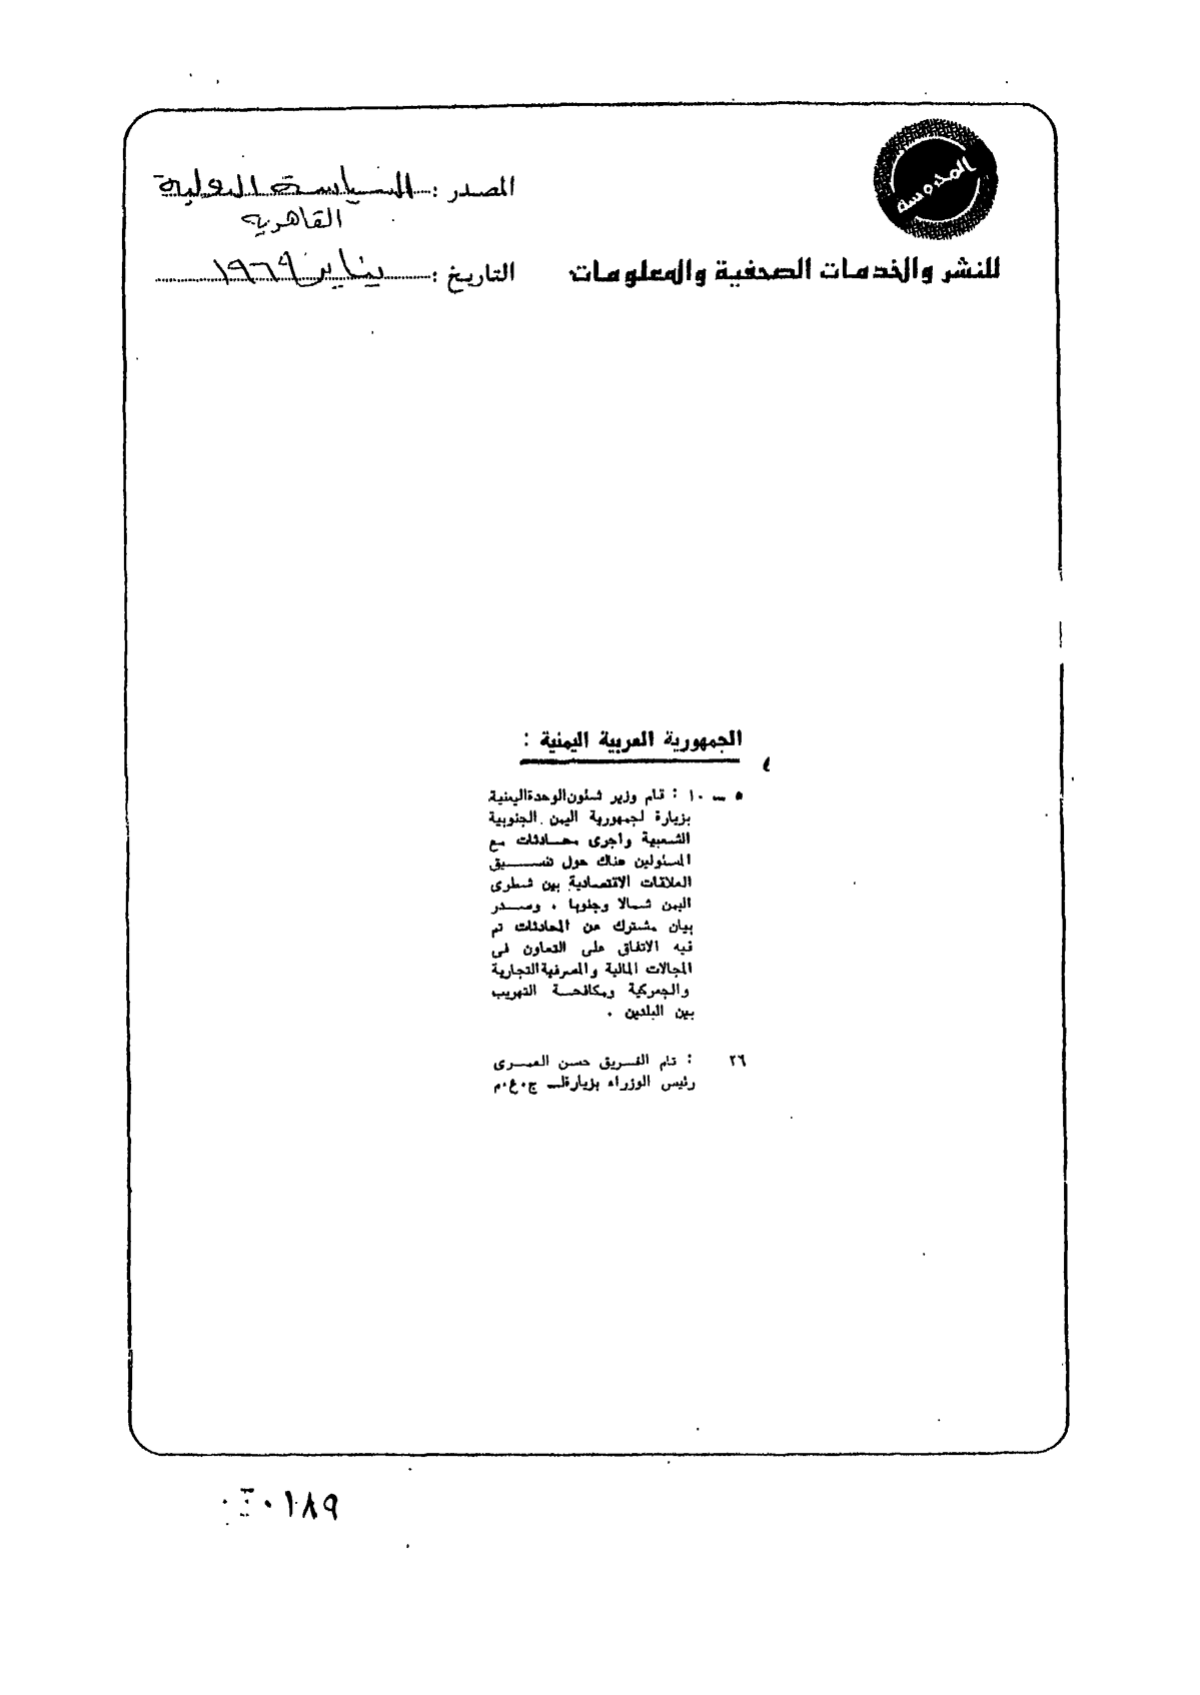 المحروسة
المصدر : السياسة الدولية
القاهرية
للنشر والخدمات الصحفية والمعلومات
التاريخ : يناير ١٩٦٩
الجمهورية العربية اليمنية :
٥ ــ ١٠ : قام وزير شئون الوحدة اليمنية
بزيارة لجمهورية اليمن الجنوبية
الشعبية وأجرى محادثات مع
المسئولين هناك حول تنسيق
العلاقات الاقتصادية بين شطرى
اليمن شمالا وجنوبا . وصدر
بيان مشترك عن المحادثات تم
فيه الاتفاق على التعاون فى
المجالات المالية والمصرفية التجارية
والجمركية ومكافحة التهريب
بين البلدين .
٢٦ : قام الفريق حسن العمرى
رئيس الوزراء بزيارة لـ ج.ع.م
٠١٨٩